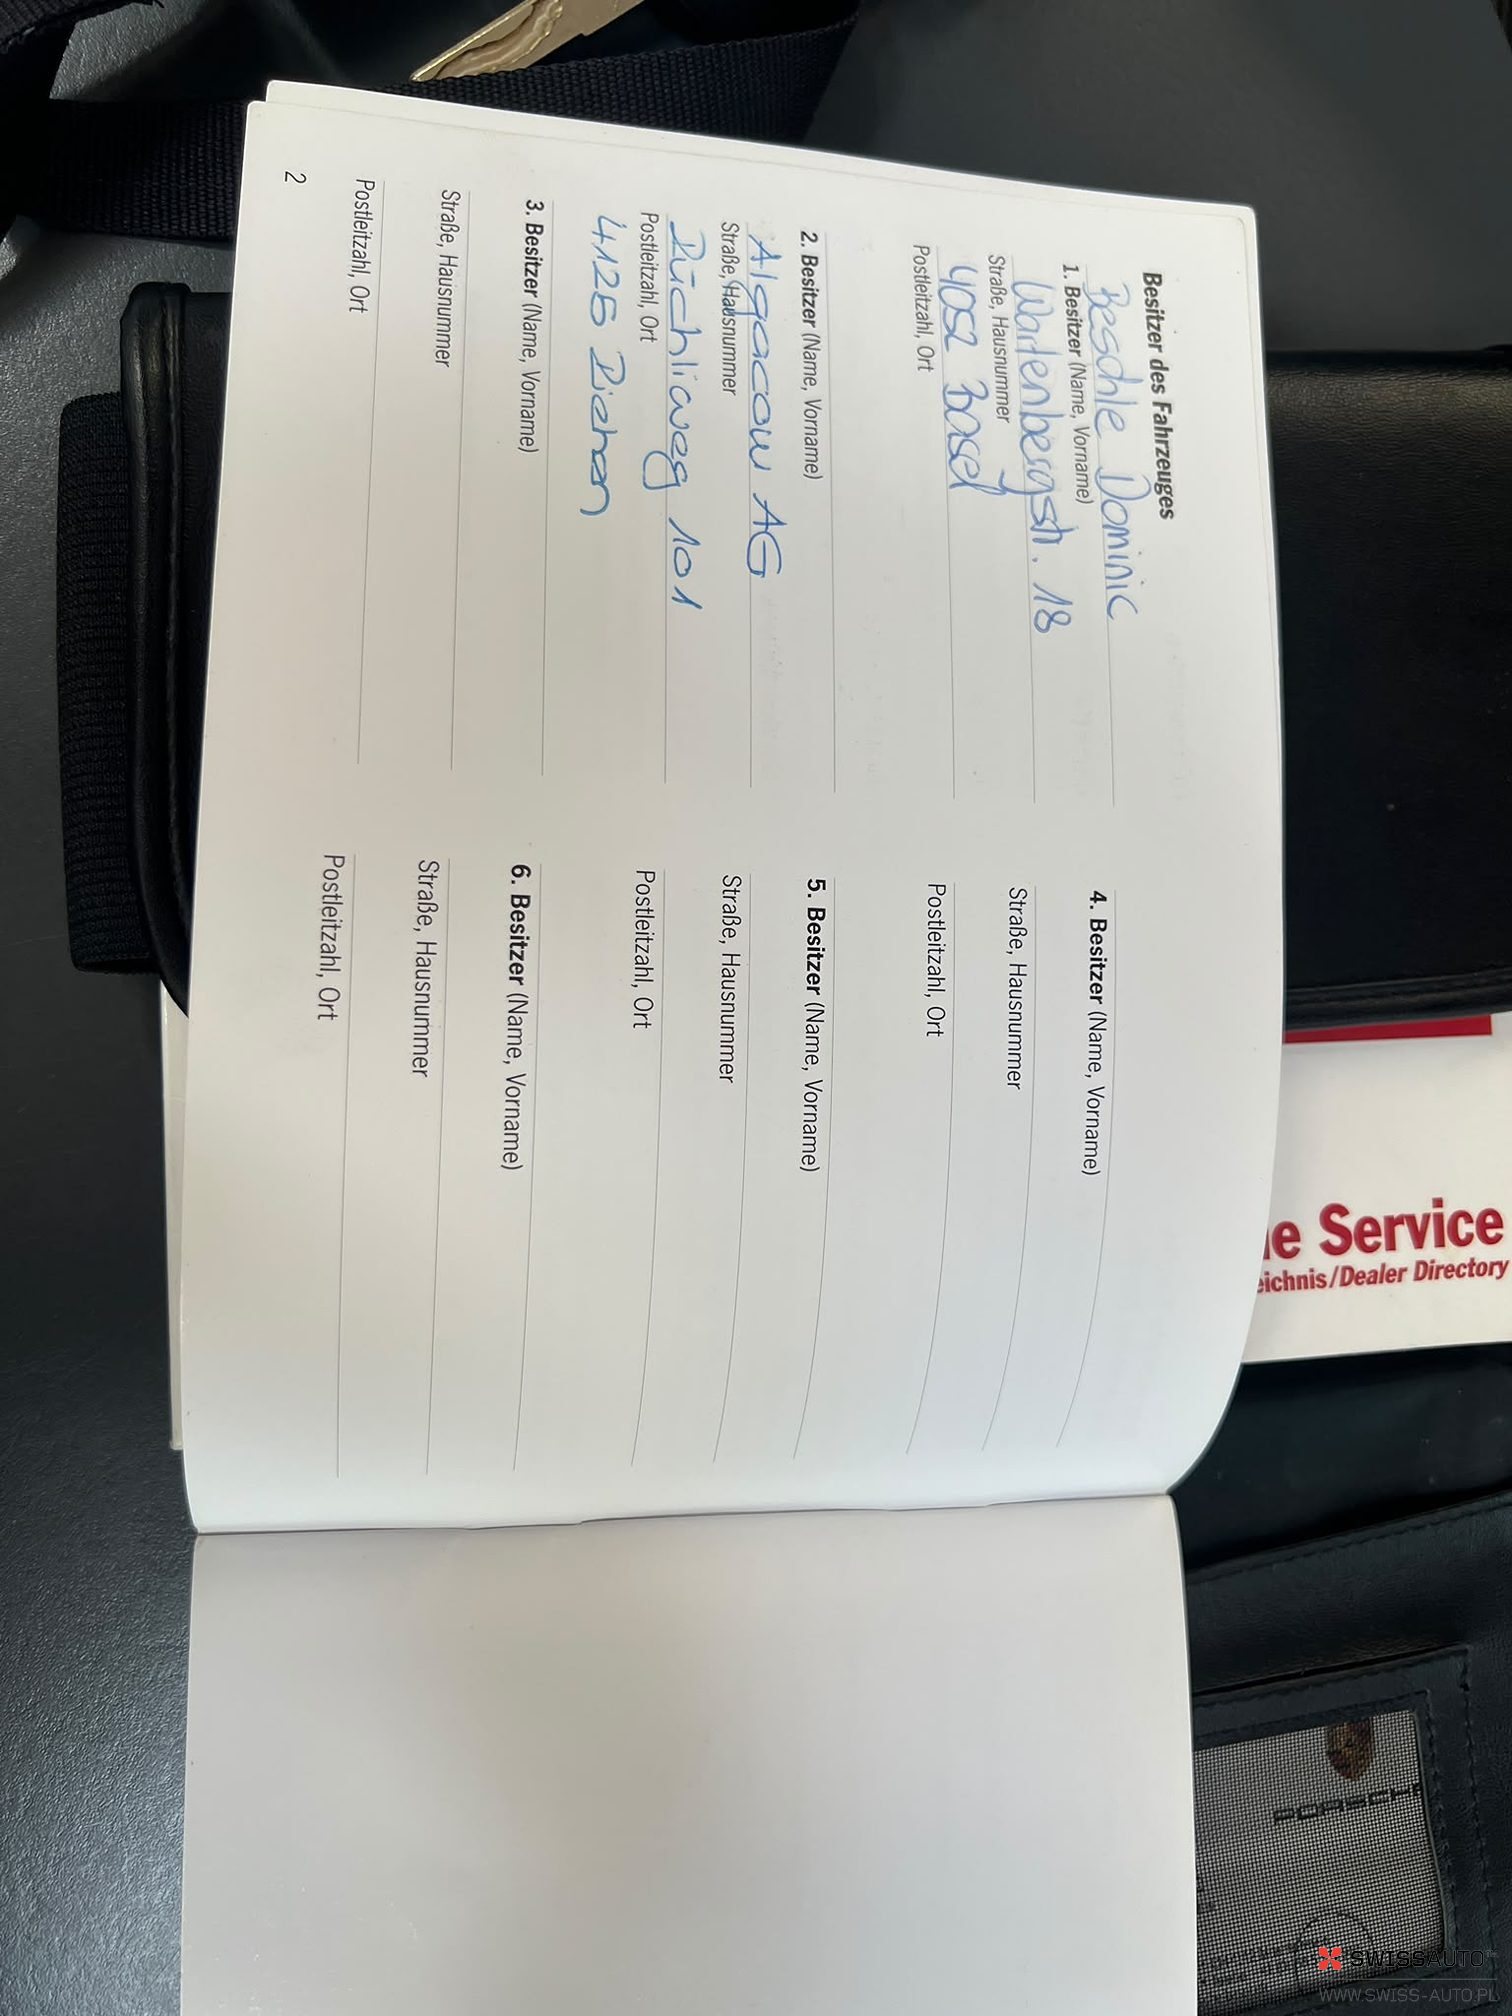 Besitzer des Fahrzeuges
Beschle Dominic
1. Besitzer (Name, Vorname)
Wartenbergstr. 18
Straße, Hausnummer
4052 Basel
Postleitzahl, Ort
2. Besitzer (Name, Vorname)
Algacom AG
Straße, Hausnummer
101
Postleitzahl, Ort
4125 Riehen
3. Besitzer (Name, Vorname)
Straße, Hausnummer
Postleitzahl, Ort
2
4. Besitzer (Name, Vorname)
Straße, Hausnummer
Postleitzahl, Ort
5. Besitzer (Name, Vorname)
Straße, Hausnummer
Postleitzahl, Ort
6. Besitzer (Name, Vorname)
Straße, Hausnummer
Postleitzahl, Ort
e Service
eichnis/Dealer Directory
PORSCHE
SWISSAUTO
WWW.SWISS-AUTO.PL